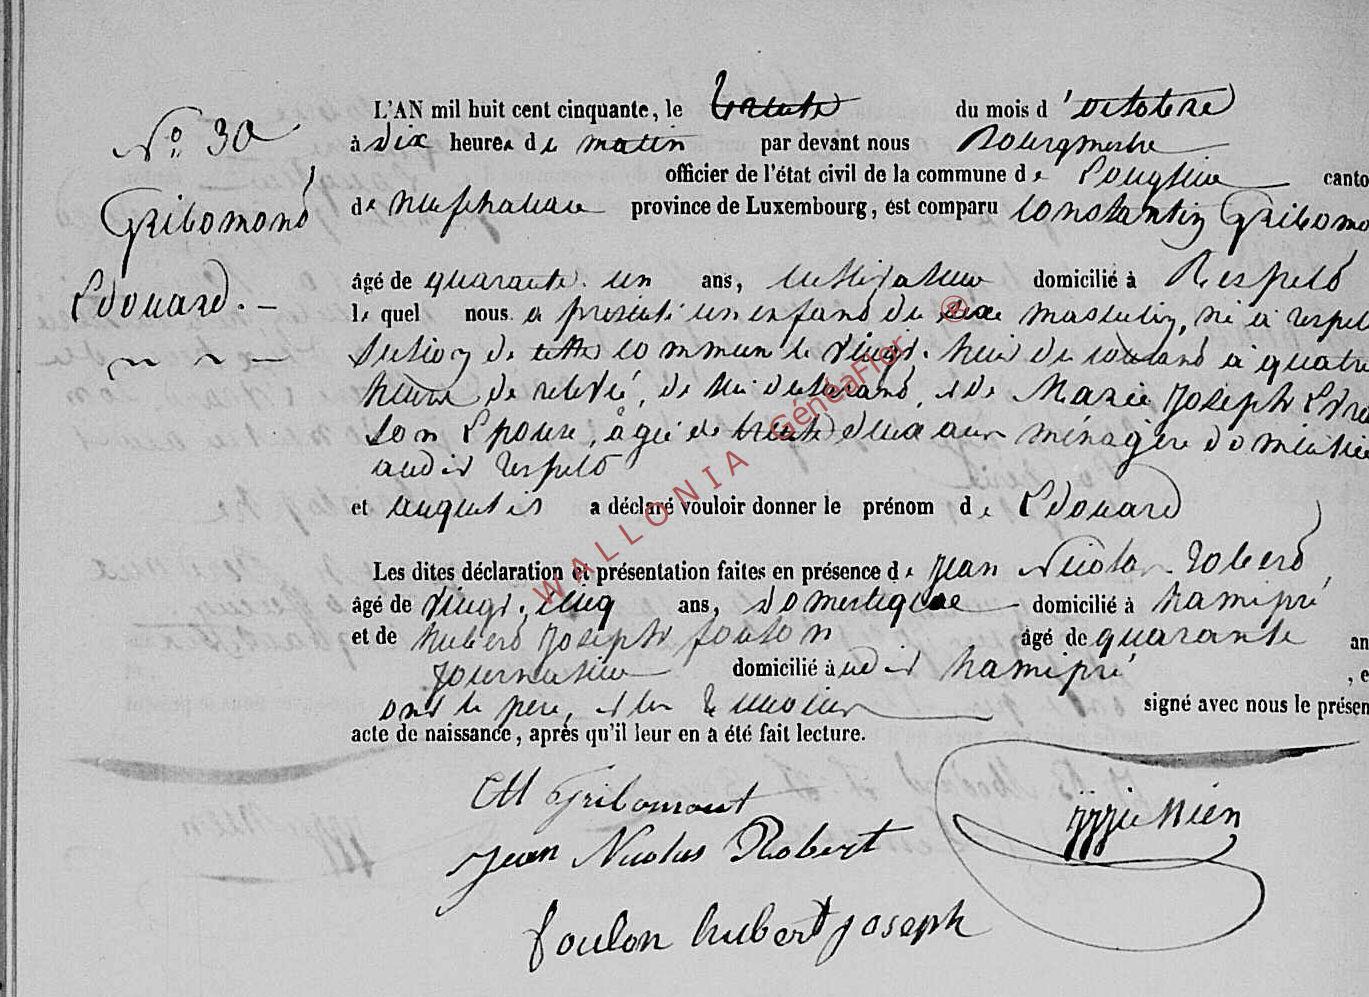 N° 30
Gribomont
Edouard. –
L'AN mil huit cent cinquante, le trente du mois d'octobre
à dix heures du matin par devant nous Bourgmestre
officier de l'état civil de la commune de Longlier canto
de neufchateau province de Luxembourg, est comparu Constantin Gribomo
âgé de quarante un ans, cultivateur domicilié à Respelt
le quel nous a presenté un enfant du sexe masculin, né à respel
section de cette commune le vingt huit du courant à quatre
heures de relevé, de lui declarant, et de Marie Joseph
son Epouse, âgée de trente deux ans ménagère domiciliée
audit respelt
et auquel il a déclaré vouloir donner le prénom de Edouard
Les dites déclaration et présentation faites en présence de Jean Nicolas Robert,
âgé de vingt cinq ans, domestique domicilié à hamipré
et de hubert Joseph foulon âgé de quarante an
Journalier domicilié audit hamipré , e
ont le père, et les temoins signé avec nous le présen
acte de naissance, après qu'il leur en a été fait lecture.
Gribomont
Jean Nicolas Robert
foulon hubert joseph
WALLONIA GénéaFlor ®